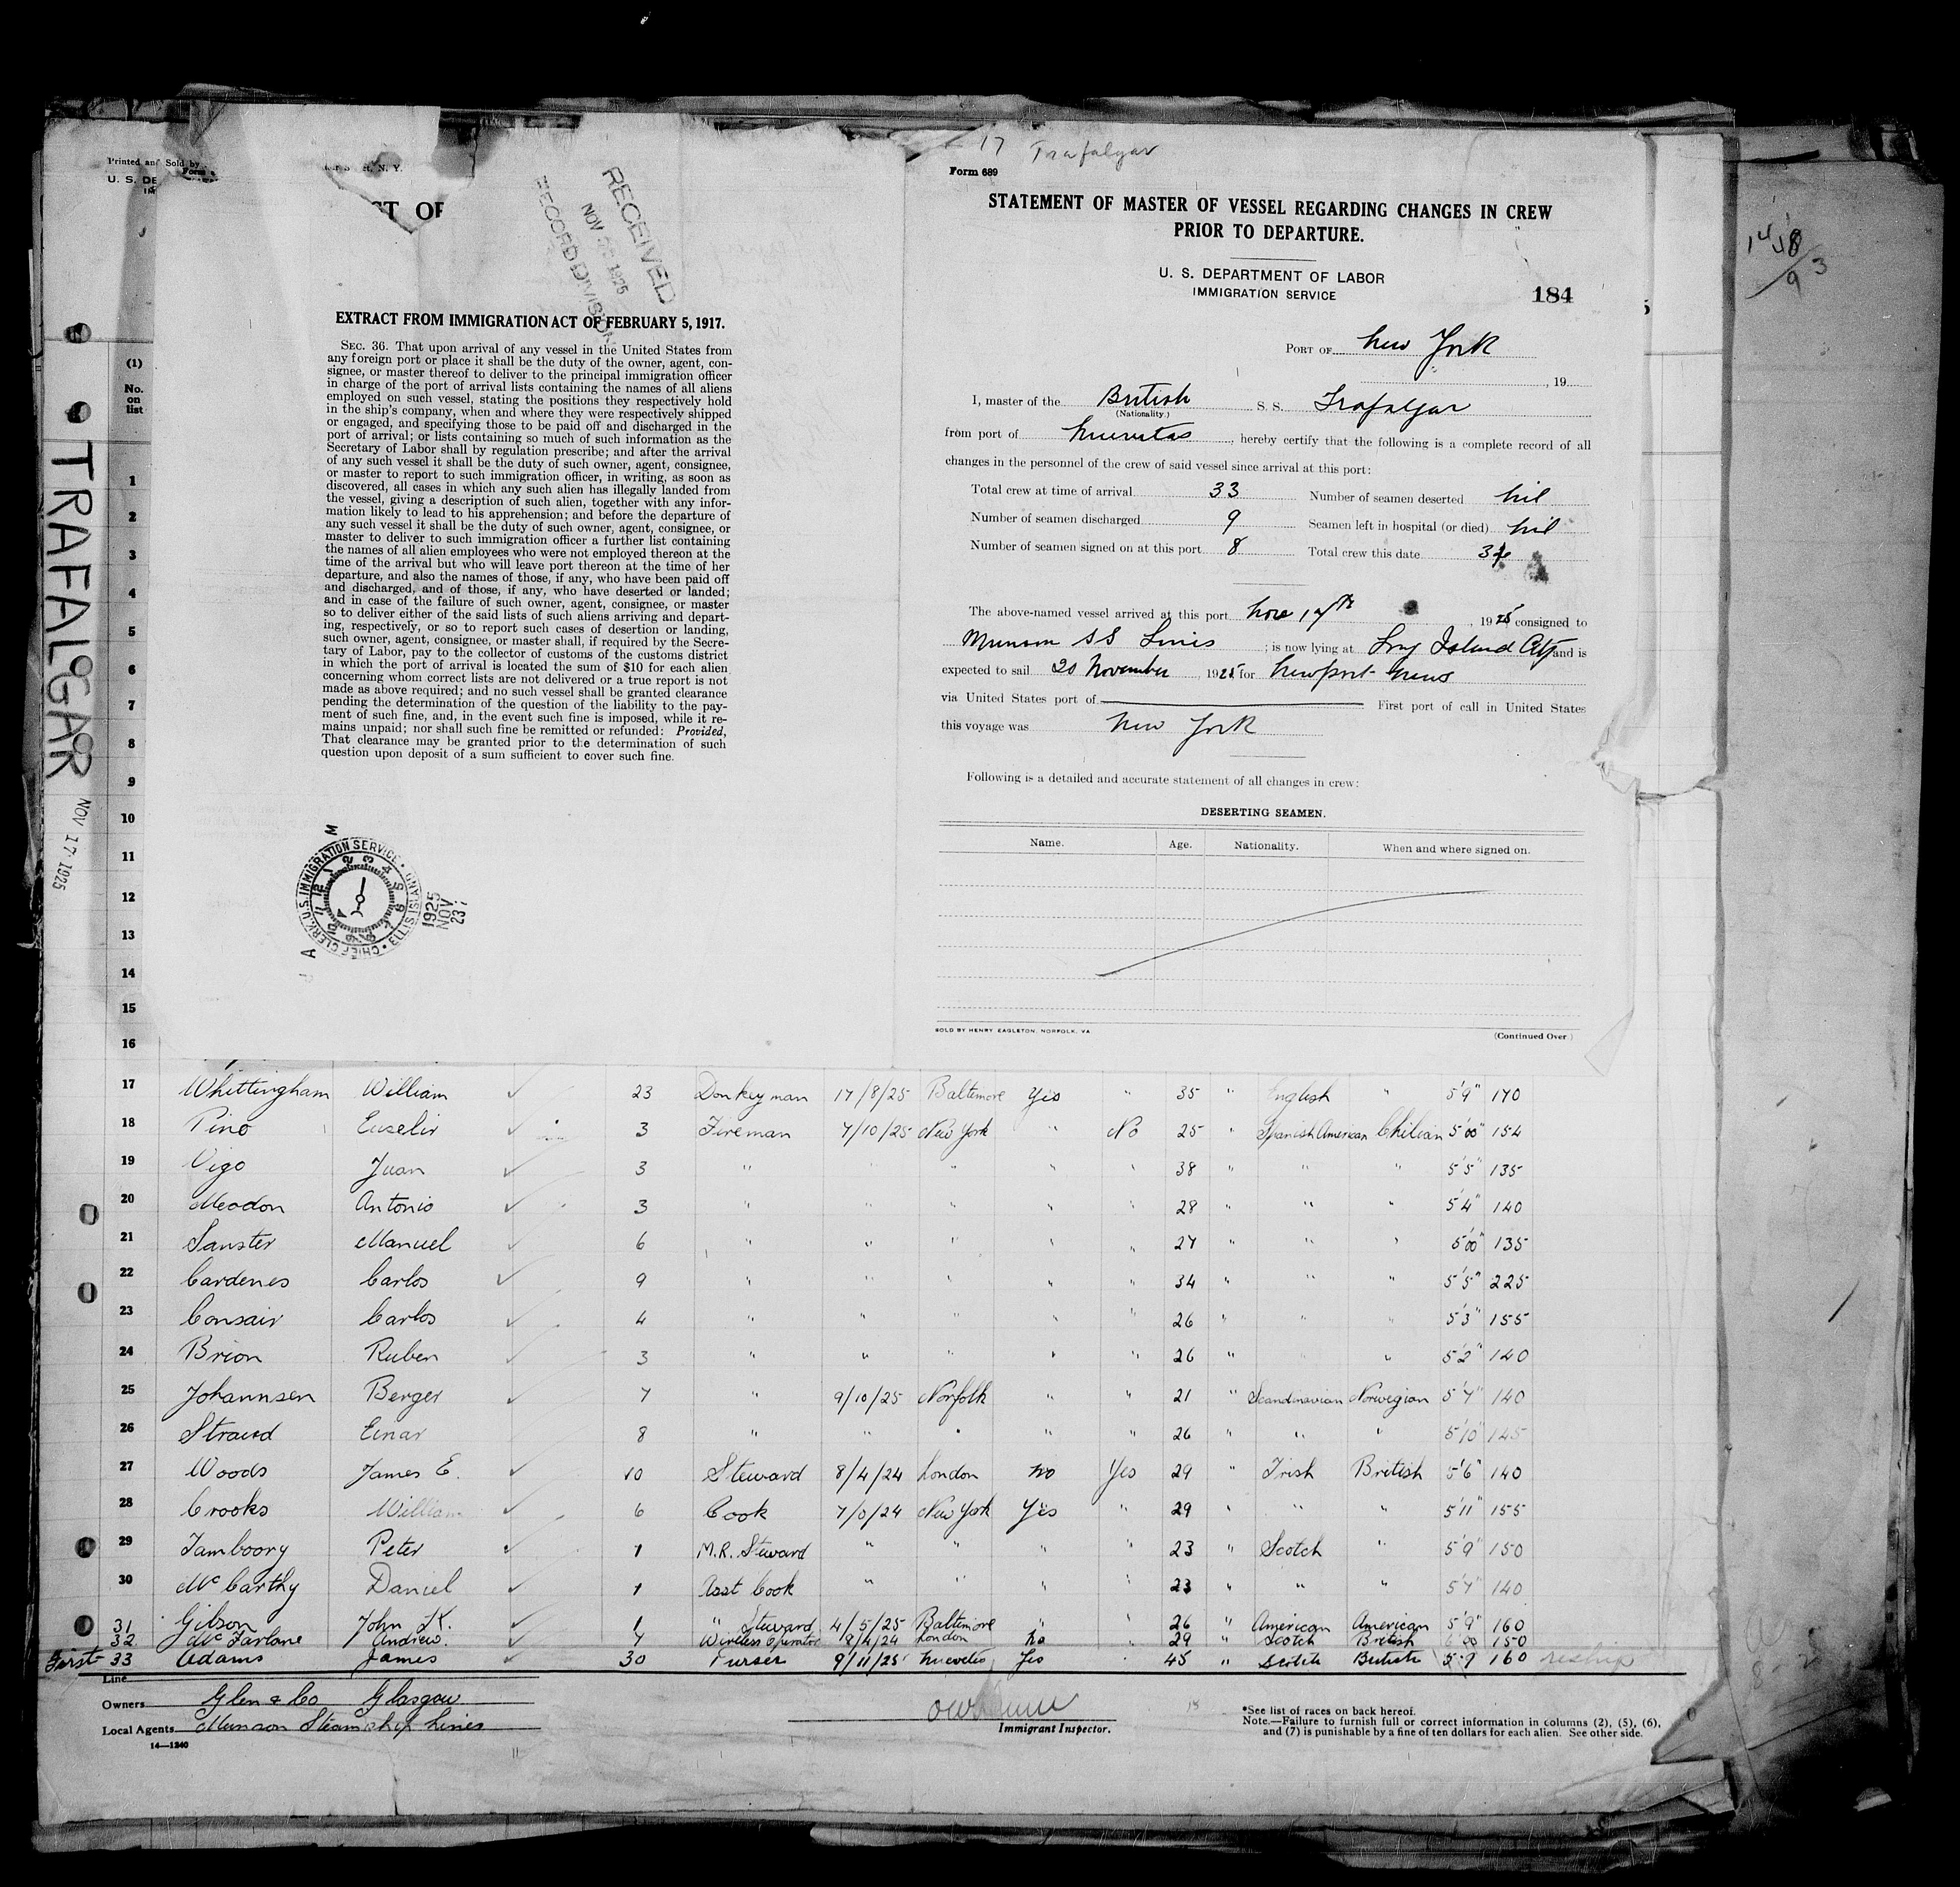 17 Trafalgar
Form 689
STATEMENT OF MASTER OF VESSEL REGARDING CHANGES IN CREW
PRIOR TO DEPARTURE.
U. S. DEPARTMENT OF LABOR
IMMIGRATION SERVICE
184
PORT OF New York
, 19
I, master of the British S. S. Trafalgar
(Nationality.)
from port of Nuevitas, hereby certify that the following is a complete record of all
changes in the personnel of the crew of said vessel since arrival at this port:
Total crew at time of arrival 33 Number of seamen deserted nil
Number of seamen discharged 9 Seamen left in hospital (or died) nil
Number of seamen signed on at this port 8 Total crew this date
The above-named vessel arrived at this port Nov 17th, 1925 consigned to
Munson SS Lines; is now lying at Long Island City and is
expected to sail 20 November, 1925 for Newport News
via United States port of First port of call in United States
this voyage was New York
Following is a detailed and accurate statement of all changes in crew:
DESERTING SEAMEN.
Name. Age. Nationality. When and where signed on.
SOLD BY HENRY EAGLETON, NORFOLK, VA (Continued Over)
Printed and Sold by
Form
U. S. DE
R, N. Y.
ST OF
RECEIVED
NOV 1925
RECORD DIVISION
EXTRACT FROM IMMIGRATION ACT OF FEBRUARY 5, 1917.
SEC. 36. That upon arrival of any vessel in the United States from
any foreign port or place it shall be the duty of the owner, agent, con-
signee, or master thereof to deliver to the principal immigration officer
in charge of the port of arrival lists containing the names of all aliens
employed on such vessel, stating the positions they respectively hold
in the ship's company, when and where they were respectively shipped
or engaged, and specifying those to be paid off and discharged in the
port of arrival; or lists containing so much of such information as the
Secretary of Labor shall by regulation prescribe; and after the arrival
of any such vessel it shall be the duty of such owner, agent, consignee,
or master to report to such immigration officer, in writing, as soon as
discovered, all cases in which any such alien has illegally landed from
the vessel, giving a description of such alien, together with any infor-
mation likely to lead to his apprehension; and before the departure of
any such vessel it shall be the duty of such owner, agent, consignee, or
master to deliver to such immigration officer a further list containing
the names of all alien employees who were not employed thereon at the
time of the arrival but who will leave port thereon at the time of her
departure, and also the names of those, if any, who have been paid off
and discharged, and of those, if any, who have deserted or landed;
and in case of the failure of such owner, agent, consignee, or master
so to deliver either of the said lists of such aliens arriving and depart-
ing, respectively, or so to report such cases of desertion or landing,
such owner, agent, consignee, or master shall, if required by the Secre-
tary of Labor, pay to the collector of customs of the customs district
in which the port of arrival is located the sum of $10 for each alien
concerning whom correct lists are not delivered or a true report is not
made as above required; and no such vessel shall be granted clearance
pending the determination of the question of the liability to the pay-
ment of such fine, and, in the event such fine is imposed, while it re-
mains unpaid; nor shall such fine be remitted or refunded: Provided,
That clearance may be granted prior to the determination of such
question upon deposit of a sum sufficient to cover such fine.
CHIEF CLERK, U.S. IMMIGRATION SERVICE • ELLIS ISLAND
1925
NOV
23
TRAFALGAR
NOV 17 1925
(1)
No.
on
list
1
2
3
4
5
6
7
8
9
10
11
12
13
14
15
16
17 Whittingham William 23 Donkeyman 17/8/25 Baltimore Yes " 35 " English " 5'9" 170
18 Pino Euselir 3 Fireman 7/10/25 New York " No 25 " Spanish American Chilian 5'00" 154
19 Vigo Juan 3 " " " " " 38 " " " 5'5" 135
20 Meodon Antonio 3 " " " " " 28 " " " 5'4" 140
21 Sanster Manuel 6 " " " " " 27 " " " 5'00" 135
22 Cardenes Carlos 9 " " " " " 34 " " " 5'5" 225
23 Consair Carlos 4 " " " " " 26 " " " 5'3" 155
24 Brion Ruben 3 " " " " " 26 " " " 5'2" 140
25 Johannsen Berger 7 " 9/10/25 Norfolk " " 21 " Scandinavian Norwegian 5'7" 140
26 Straud Einar 8 " " " " " 26 " " " 5'10" 145
27 Woods James E. 10 Steward 8/4/24 London No Yes 29 " Irish British 5'6" 140
28 Crooks William 6 Cook 7/0/24 New York Yes " 29 " " " 5'11" 155
29 Tamboory Peter 1 M.R. Steward " " " " 23 " Scotch " 5'9" 150
30 McCarthy Daniel 1 Asst Cook " " " " 23 " " " 5'7" 140
31 Gibson John K. 1 " Steward 4/5/25 Baltimore " " 26 " American American 5'9" 160
32 McFarlane Andrew. 7 Wireless Operator 8/4/24 London No " 29 " Scotch British 6'00 150
33 Adams James 30 Purser 9/11/25 Nuevitas Yes " 45 " Scotch British 5.9 160 reship
First
Line
Owners Glen & Co Glasgow
Local Agents Munson Steamship Lines
14—1240
Immigrant Inspector.
*See list of races on back hereof.
Note.—Failure to furnish full or correct information in columns (2), (5), (6),
and (7) is punishable by a fine of ten dollars for each alien. See other side.